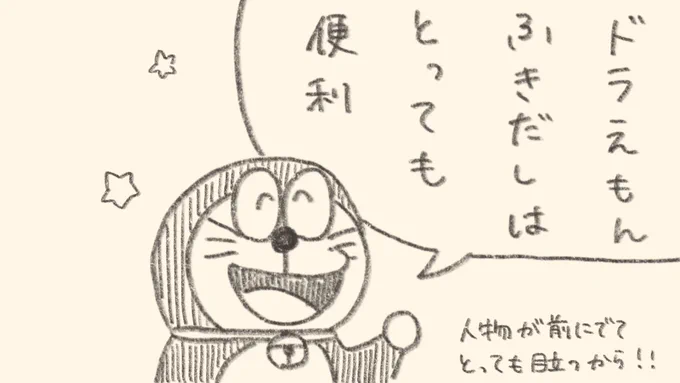 ドラえもん
ふきだしは
とっても
便利
人物が前にでて
とっても目立つから!!